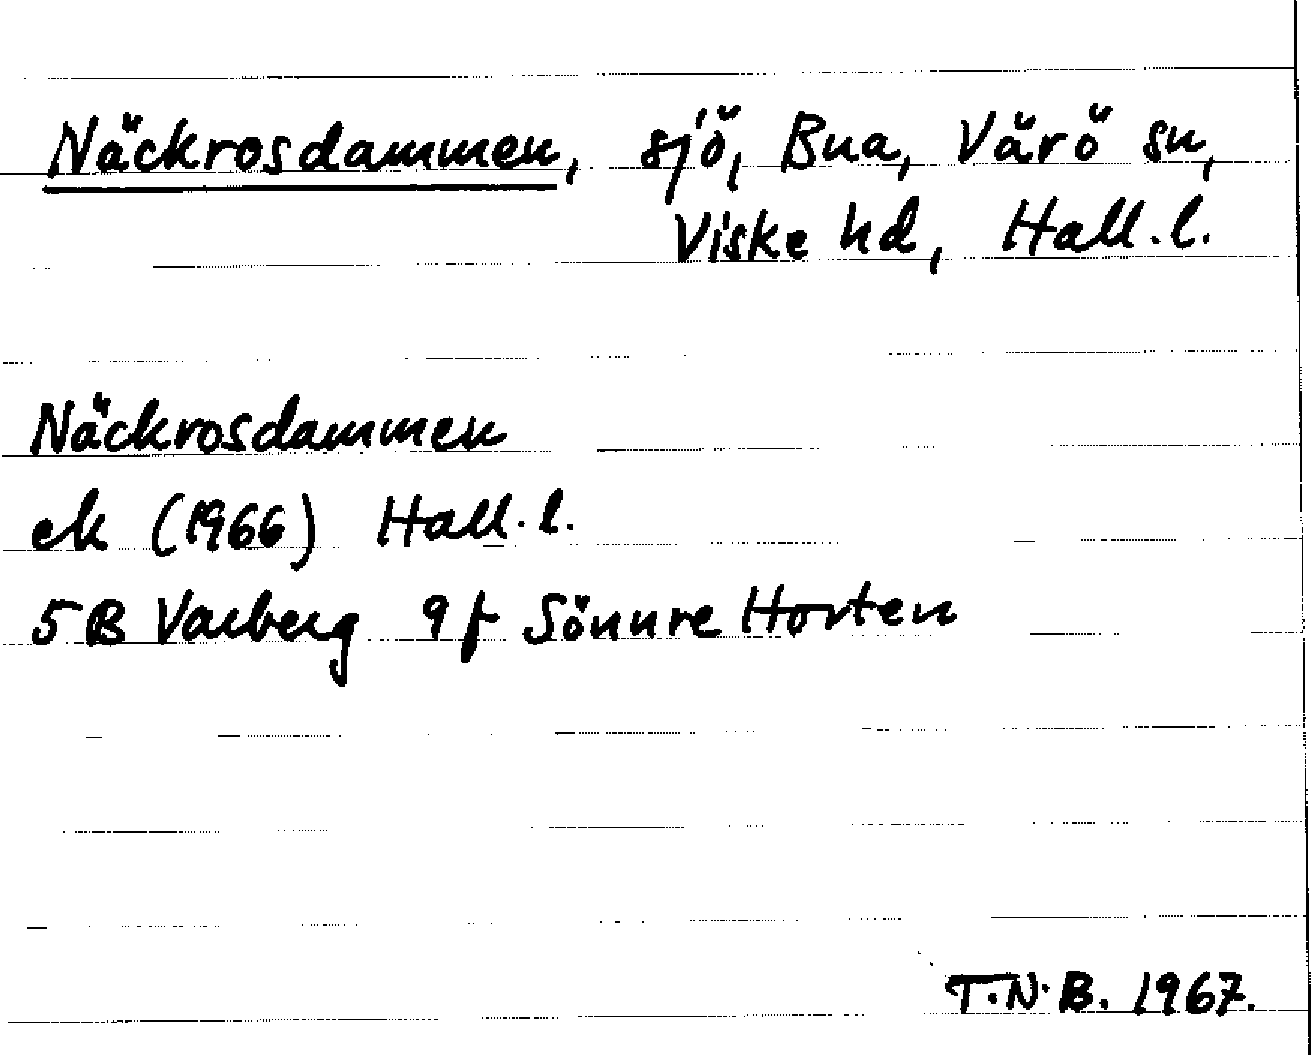 Näckrosdammen, sjö, Bua, Värö sn,
Viske hd, Hall.l.
Näckrosdammen
ek (1966) Hall.l.
5B Varberg 9f Sönnre Horten
T.N.B. 1967.